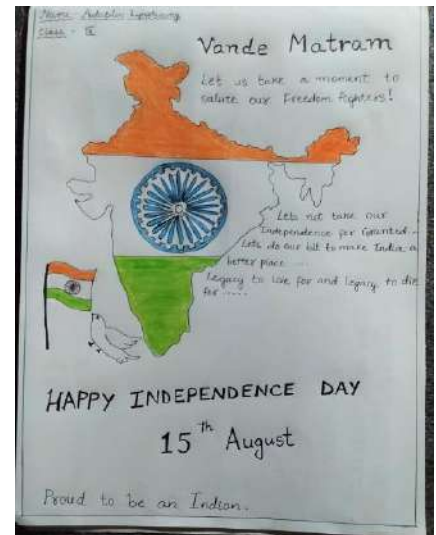 Name -
Class - IX
Vande Matram
Let us take a moment to
salute our Freedom fighters!
Lets not take our
Independence for Granted...
Lets do our bit to make India a
better place ....
Legacy to live for and legacy to die
for .....
HAPPY INDEPENDENCE DAY
15th August
Proud to be an Indian.